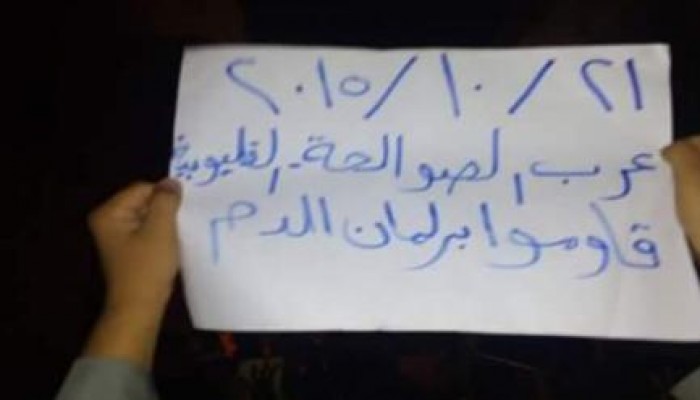 ٢٠١٥/١٠/٢١
عرب الصوالحة - القليوبية
قاوموا برلمان الدم